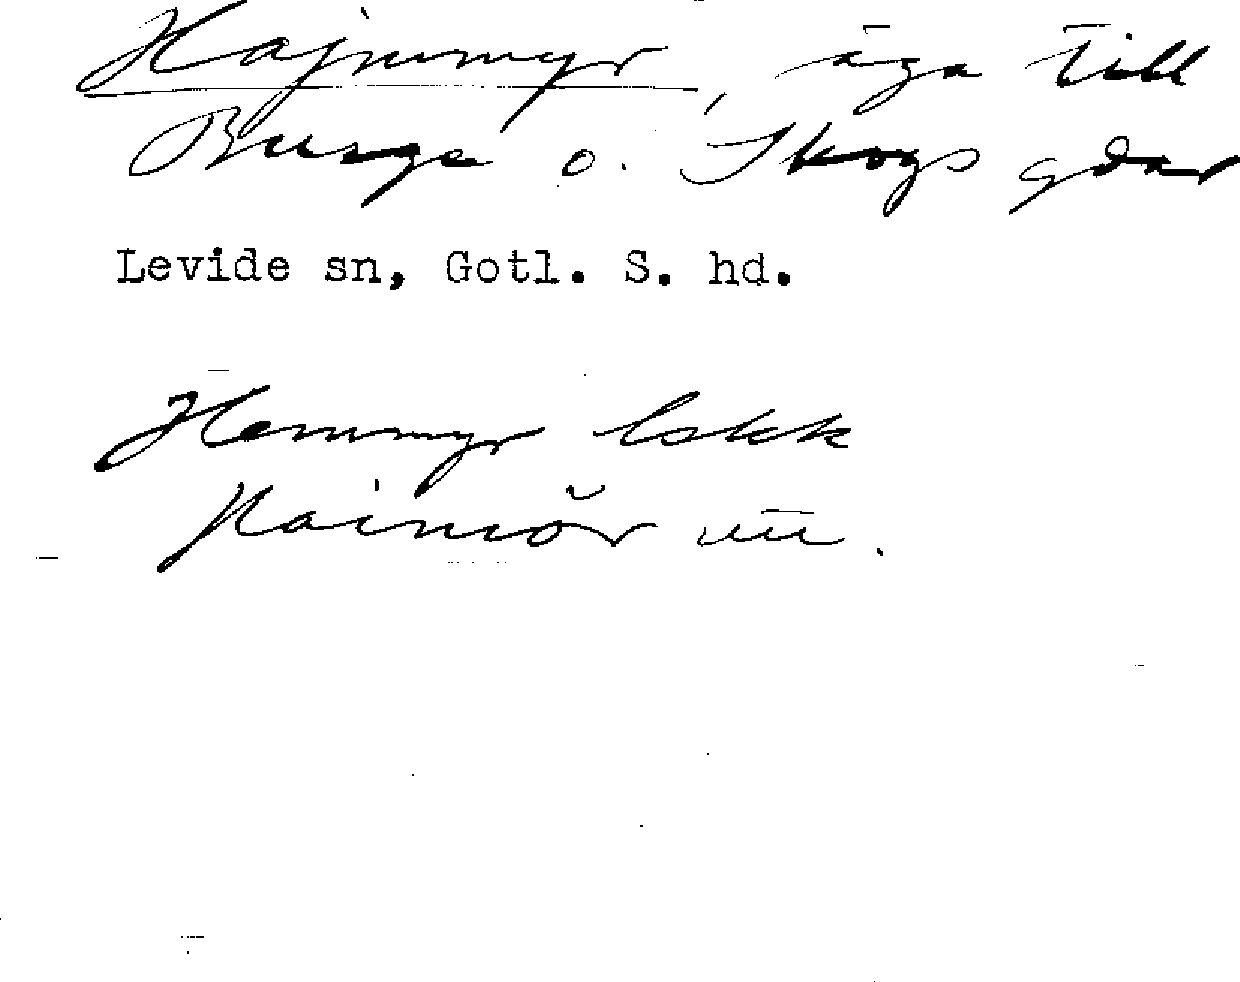 Hajnmyr, äga till
Burge o. Skogs gdar
Levide sn, Gotl. S. hd.
Hemmyr lokk